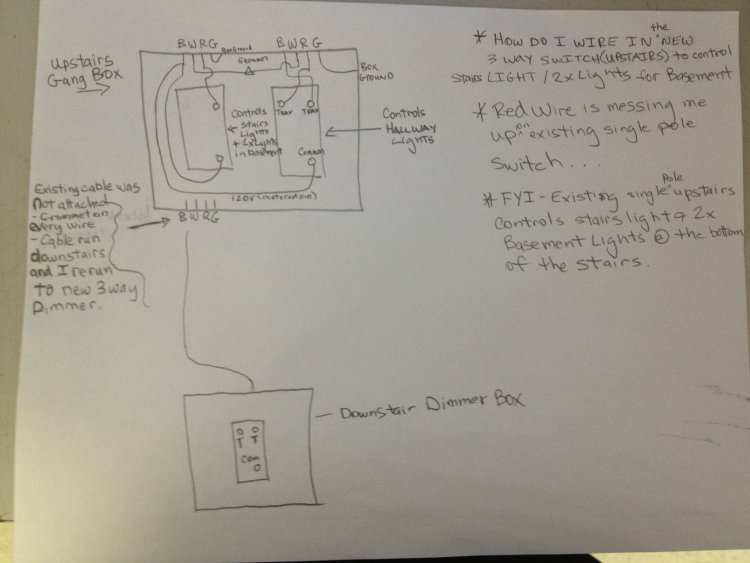 upstairs
Gang Box
B W R G
Box Ground
Ground
B W R G
BOX
GROUND
Controls
Stairs
Lights
+ 2x Lights
in basement
TRAV
TRAV
Common
Controls
HALLWAY
Lights
120V (metered our)
B W R G
Existing cable was
Not attached
- Grommet on
every wire
- Cable run
downstairs
and I rerun
to new 3 way
Dimmer.
* HOW DO I WIRE IN the NEW
3 WAY SWITCH (UPSTAIRS) to control
Stairs LIGHT / 2x Lights for Basement
* Red Wire is messing me
up on existing single pole
switch...
* FYI - Existing single Pole upstairs
Controls stairs light & 2x
Basement Lights @ the bottom
of the stairs.
Downstair Dimmer Box
T T
Com